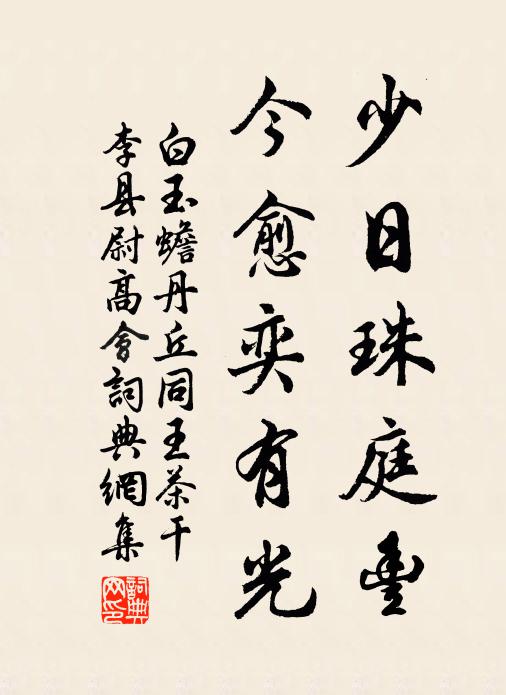 少日珠庭豐
今愈奕有光
白玉蟾丹丘同王茶干
李县尉高會詞典網集
詞典網印